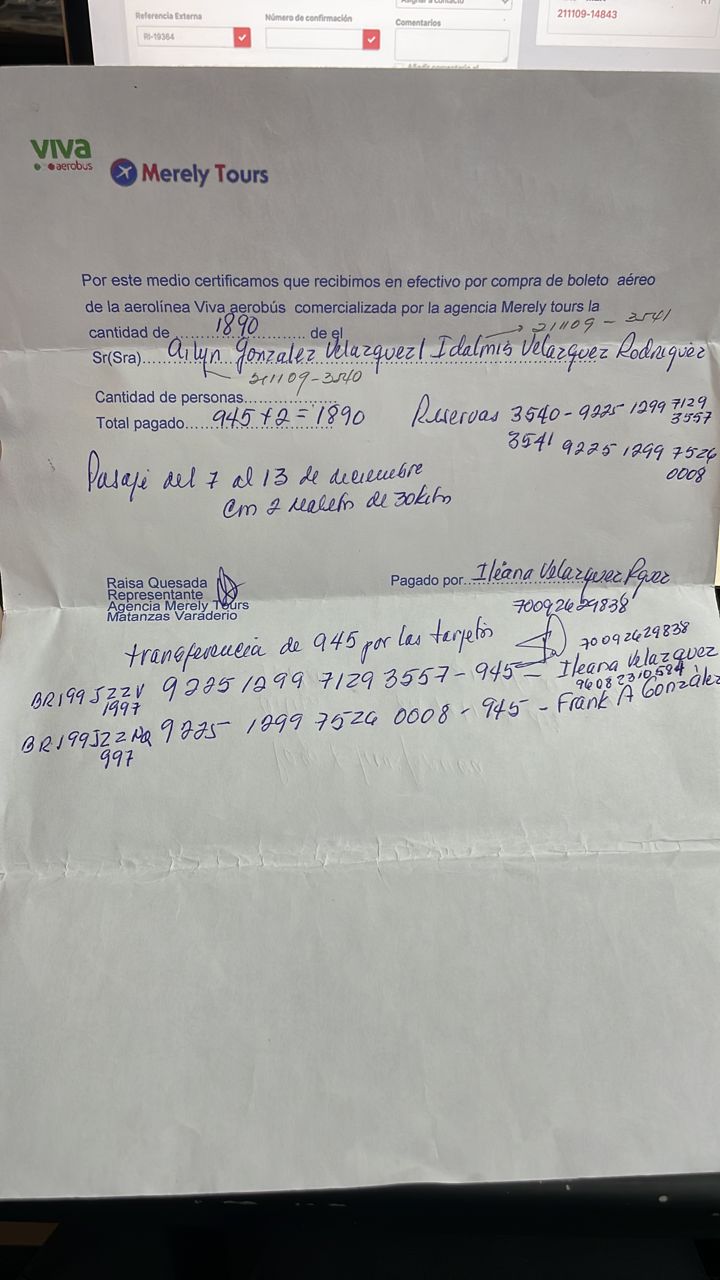 Referencia Externa
Número de confirmación
Comentarios
RI-19364
211109-14843
viva
aerobus
Merely Tours
Por este medio certificamos que recibimos en efectivo por compra de boleto aéreo
de la aerolínea Viva aerobús comercializada por la agencia Merely tours la
cantidad de 1890 de el
21109 - 3541
Sr(Sra) Ailyn Gonzalez Velazquez / Idalmis Velazquez Rodriguez
211109-3540
Cantidad de personas
Total pagado 945 + 2 = 1890
Reservas 3540 - 9225 1299 7129
3557
3541 9225 1299 7526
0008
Pasaje del 7 al 13 de diciembre
con 2 maletas de 30kilos
Raisa Quesada
Representante
Agencia Merely Tours
Matanzas Varaderio
Pagado por Ileana Velazquez Rguez
70092629838
transferencia de 945 por las tarjetas
70092629838
BR199JZZV 9225 1299 7129 3557 - 945 - Ileana Velazquez
1997
96082310584
9225 1299 7526 0008 - 945 - Frank A González
997